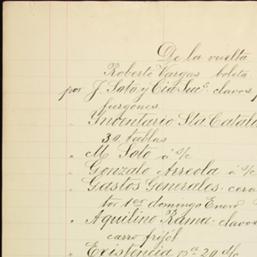 De la vuelta
Roberto Vargas boleta
por J. Soto y Cia Suc. clavos p
furgones
" Inventario Sta Catal
30 tablas
" M. Soto á s/c
" Gonzalo Arreola á s/c
" Gastos Generales
tor 1er domingo Enero
" Aquilino Rama clavos
carro frijol
" Existencia pa 29 s/c